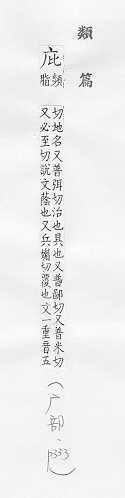 類篇
庇
頻
脂
切地名又普弭切治也具也又普鄙切又普米切
又必至切說文蔭也又兵媚切覆也文一重音五
(广部、p333)